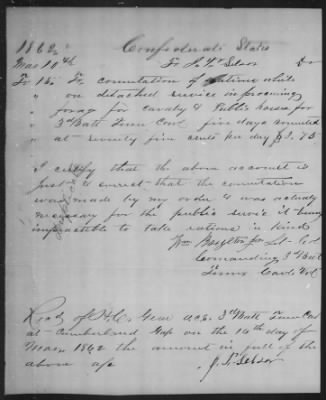 1862
Confederate States
Mar 10th To Dr
To 15 For commutation of rations while
" on detached service in procuring
" forage for cavalry & Public horses for
" 3rd Batt Tenn Cav, five days
" at seventy five cents per day $3.75
I certify that the above account is
just & correct that the commutation
was made by my order & was actualy
necessary for the public service it being
impracticable to take rations in kind
Wm Lt Col
Comanding 3rd Bat
Tenn Cavl Vol
Recd of H.C. acs. 3rd Batt Tenn Cav
at Cumberland Gap on the 14th day of
Mar 1862 the amount in full of the
above